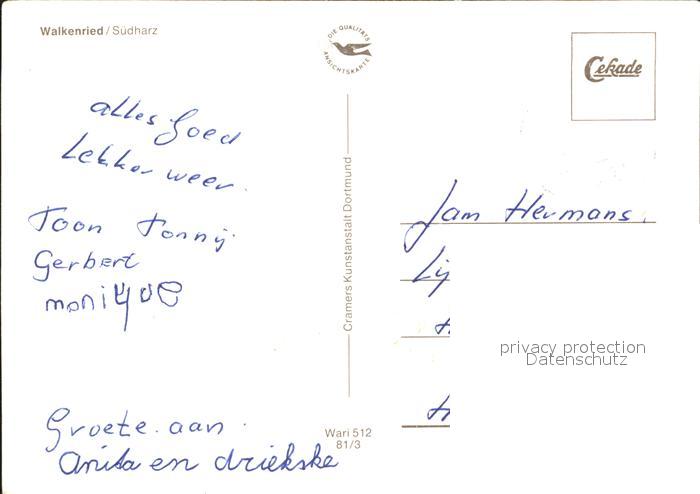 Walkenried / Südharz
DIE QUALITÄTS
ANSICHTSKARTE
Cekade
alles goed
Lekker weer.
Toon Tonny
Gerbert
monique
Groete. aan
Anita en driekske
Cramers Kunstanstalt Dortmund
Wari 512
81/3
Jam Hermans.
privacy protection
Datenschutz